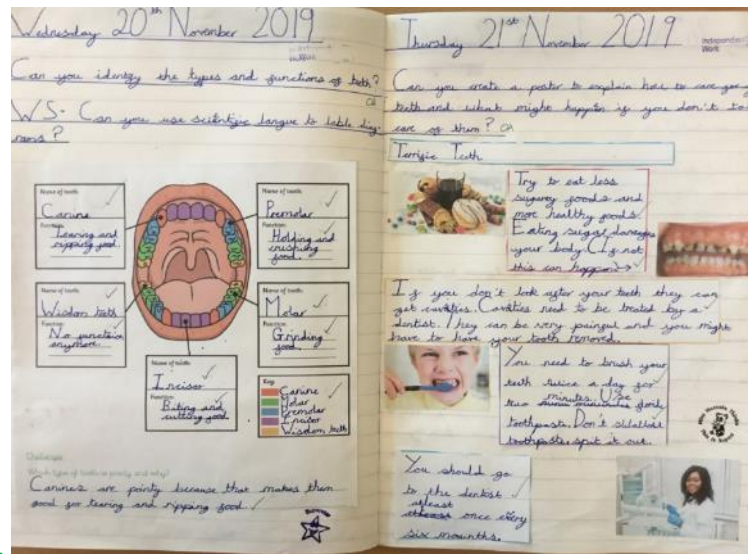 Wednesday 20th November 2019
Can you identify the types and functions of teeth?
WS- Can you use scientific langue to lable diag-
rams?
Name of tooth:
Canine
Function:
Tearing and
ripping food.
Name of tooth:
Premolar
Function:
Holding and
crushing
food.
Name of tooth:
Wisdom teeth
Function:
No function
anymore.
Name of tooth:
Molar
Function:
Grinding
food.
Name of tooth:
Incisor
Function:
Biting and
cutting food
Key
Canine
Molar
Premolar
Incisor
Wisdom teeth
Challenge:
Which type of tooth is pointy and why?
Canines are pointy because that makes them
good for tearing and ripping food.
Thursday 21st November 2019
Independent
Work
Can you create a poster to explain how to care for
teeth and what might happen if you don't
care of them?
Terrific Teeth
Try to eat less
sugary foods and
more healthy foods.
Eating sugar damages
your body. (If not
this can happen)
If you don't look after your teeth they can
get cavities. Cavities need to be treated by a
dentist. They can be very painful and you might
have to have your tooth removed.
You need to brush your
teeth twice a day for
minutes. Use
two
toothpaste. Don't
toothpaste spit it out.
You should go
to the dentist
atleast
once every
six mounths.